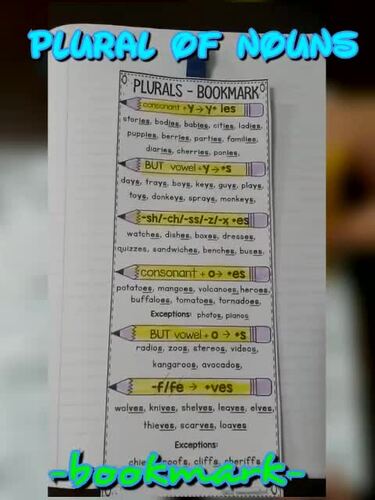 PLURAL OF NOUNS
PLURALS - BOOKMARK
consonant +y → y+ ies
stories, bodies, babies, cities, ladies,
puppies, berries, parties, families,
diaries, cherries, ponies,
BUT vowel+y → +s
days, trays, boys, keys, guys, plays,
toys, donkeys, sprays, monkeys,
-sh/-ch/-ss/-z/-x +es
watches, dishes, boxes, dresses,
quizzes, sandwiches, benches, buses,
consonant + o → +es
potatoes, mangoes, volcanoes, heroes,
buffaloes, tomatoes, tornadoes,
Exceptions: photos, pianos
BUT vowel + o → +s
radios, zoos, stereos, videos,
kangaroos, avocados,
-f/fe → +ves
wolves, knives, shelves, leaves, elves,
thieves, scarves, loaves
Exceptions:
roofs, cliffs, sheriffs
-bookmark-